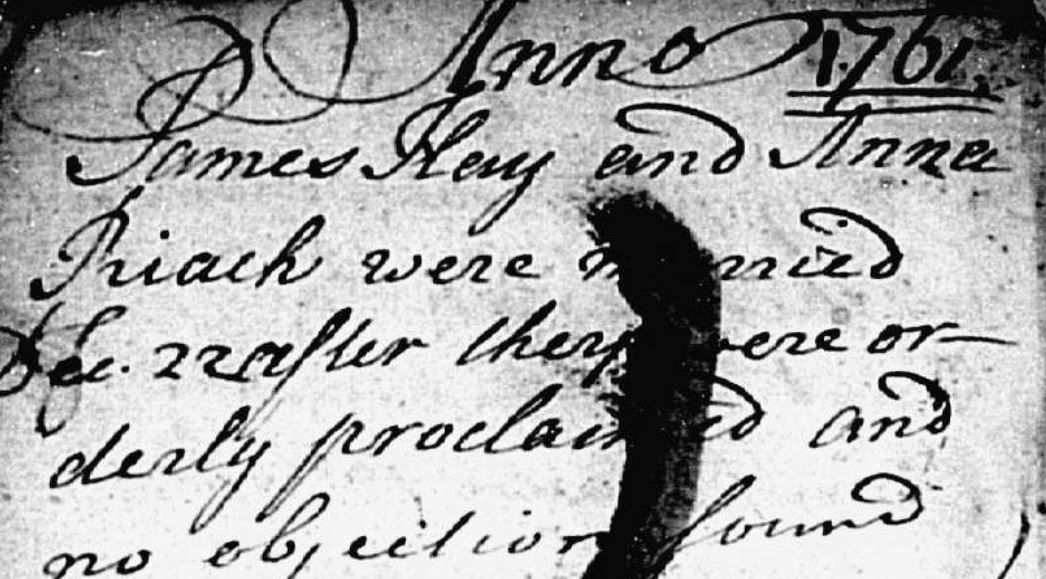 Anno 1761.
James Hay and Anna
Riach were married
Dec. 22 after they were or-
derly proclaimed and
no objection found